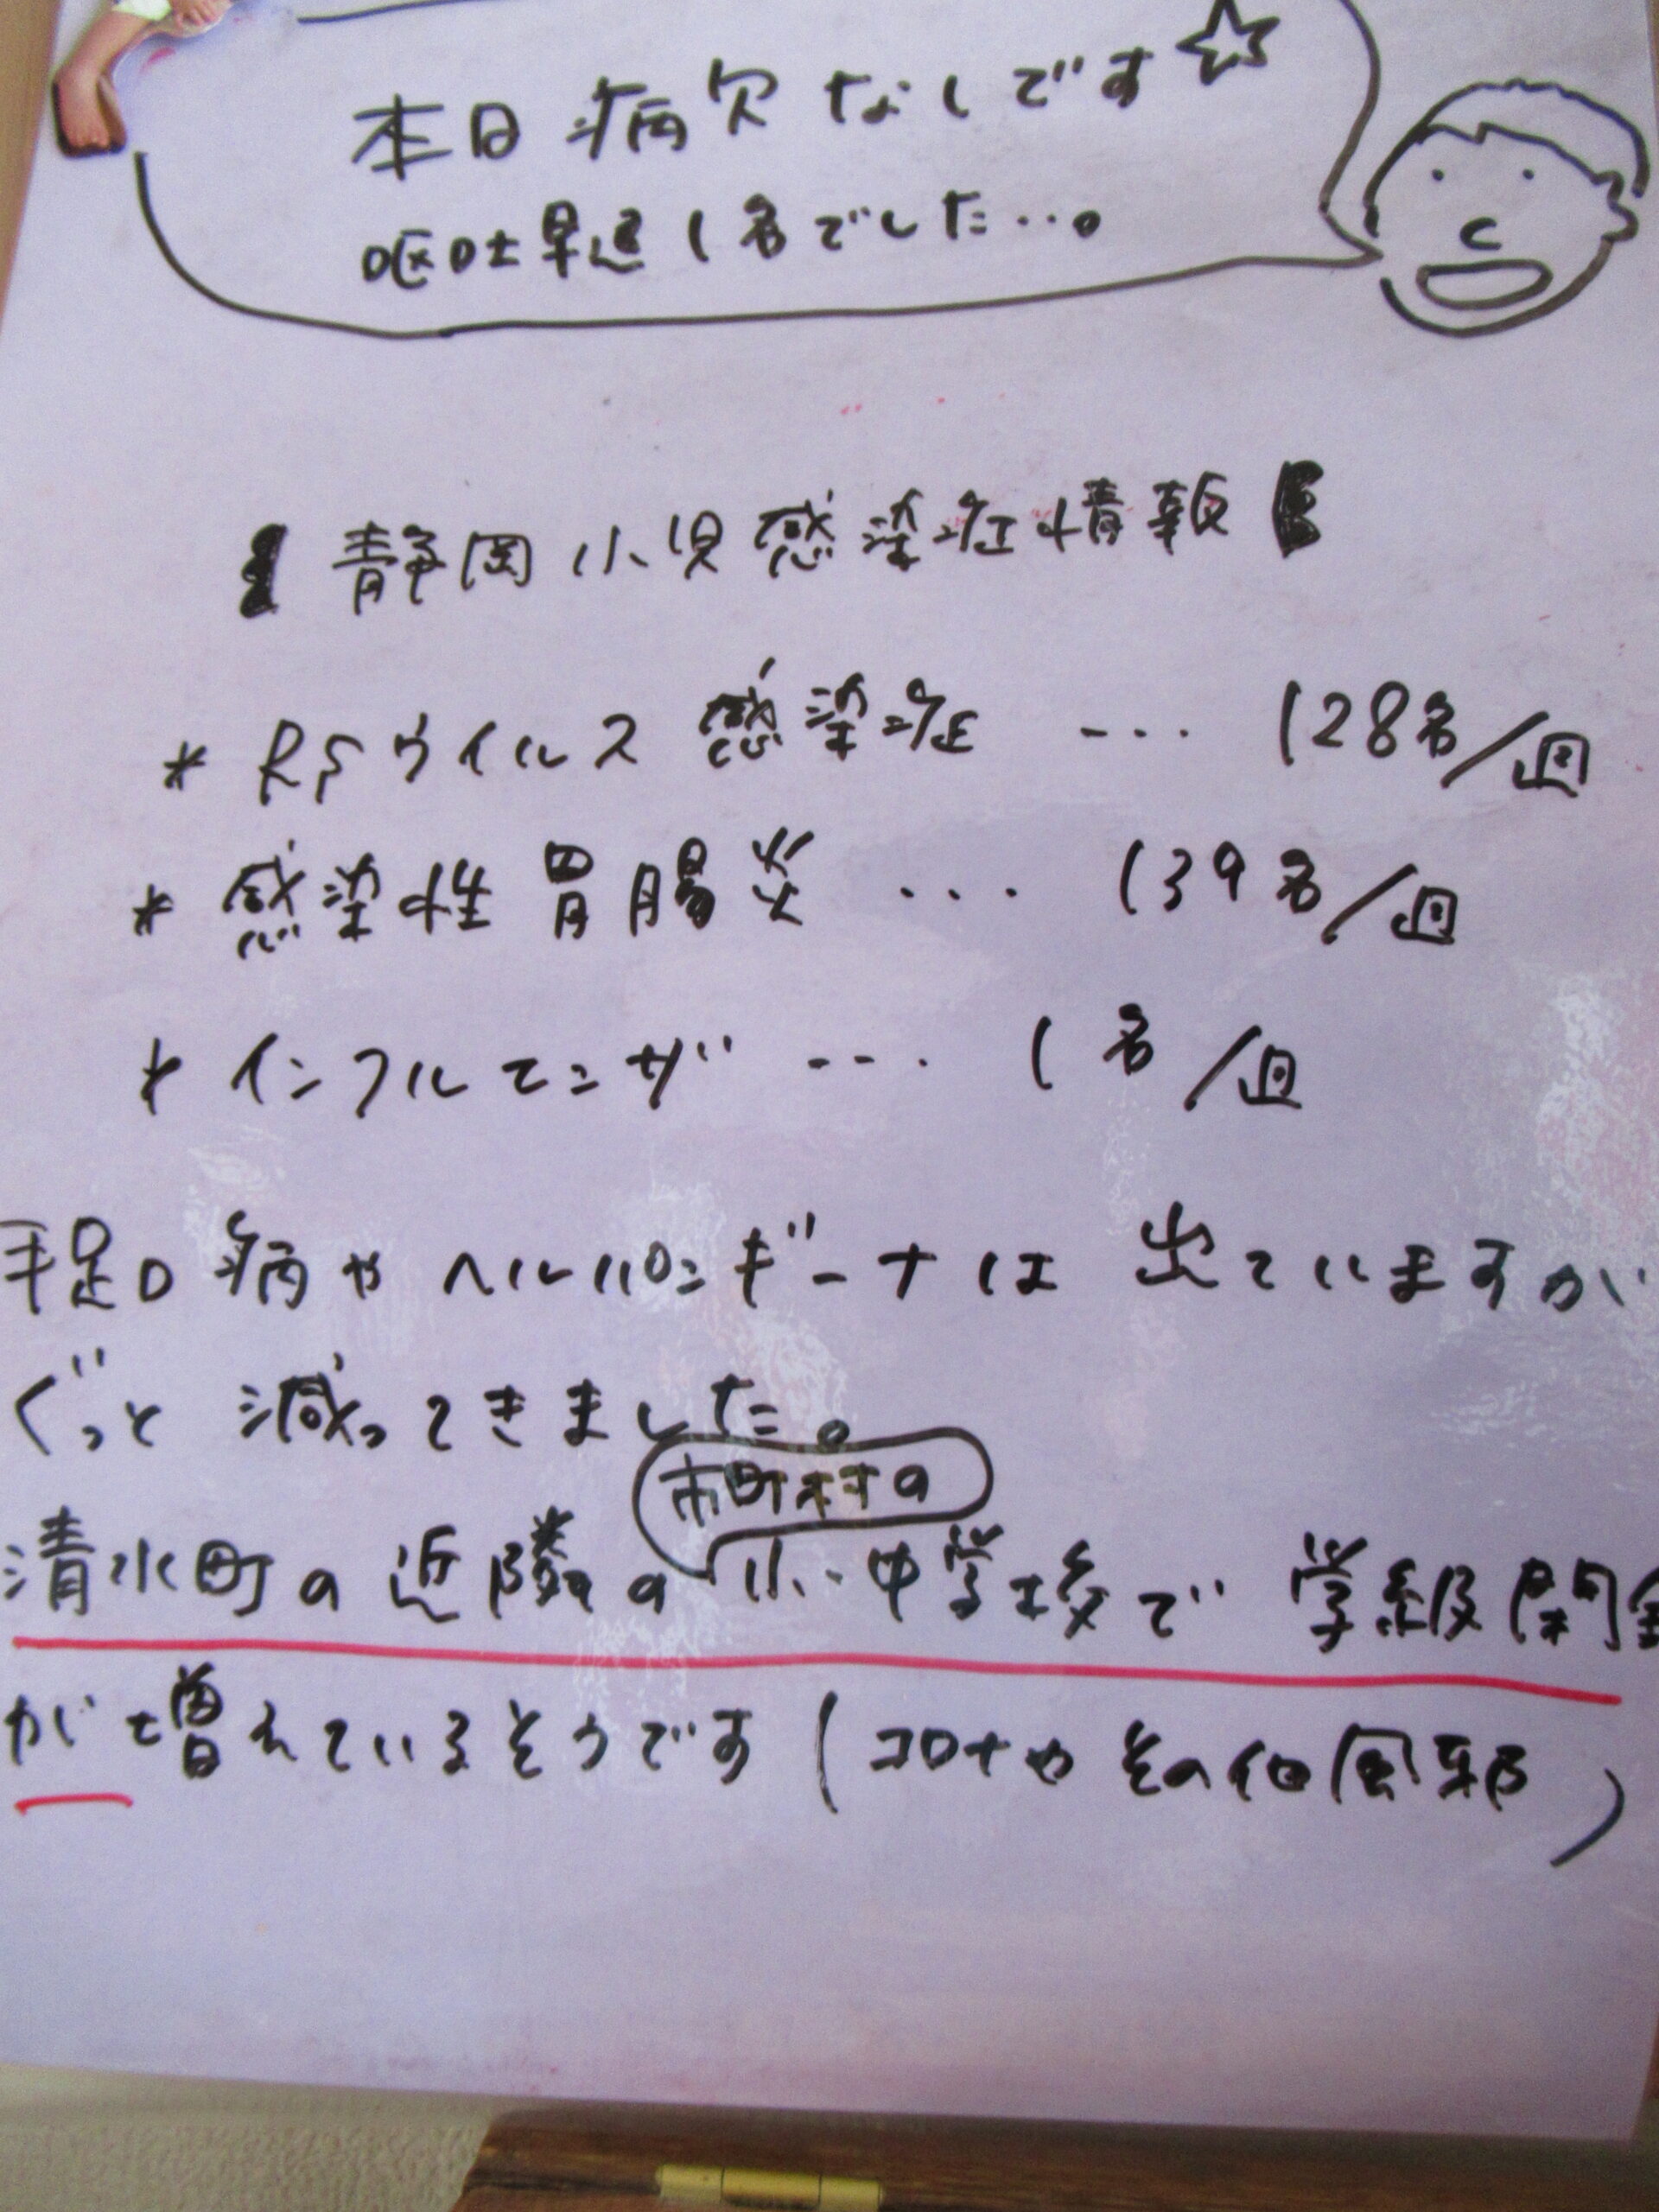 本日 病欠 なしです☆
嘔吐早退1名でした…。
【静岡小児感染症情報】
* RSウイルス 感染症 … 128名/週
* 感染性 胃腸炎 … 139名/週
* インフルエンザ … 1名/週
手足口病やヘルパンギーナは 出ていますが
ぐっと 減ってきました。
市町村の
清水町の近隣の小・中学校で 学級閉鎖
が増えているそうです(コロナやその他風邪)